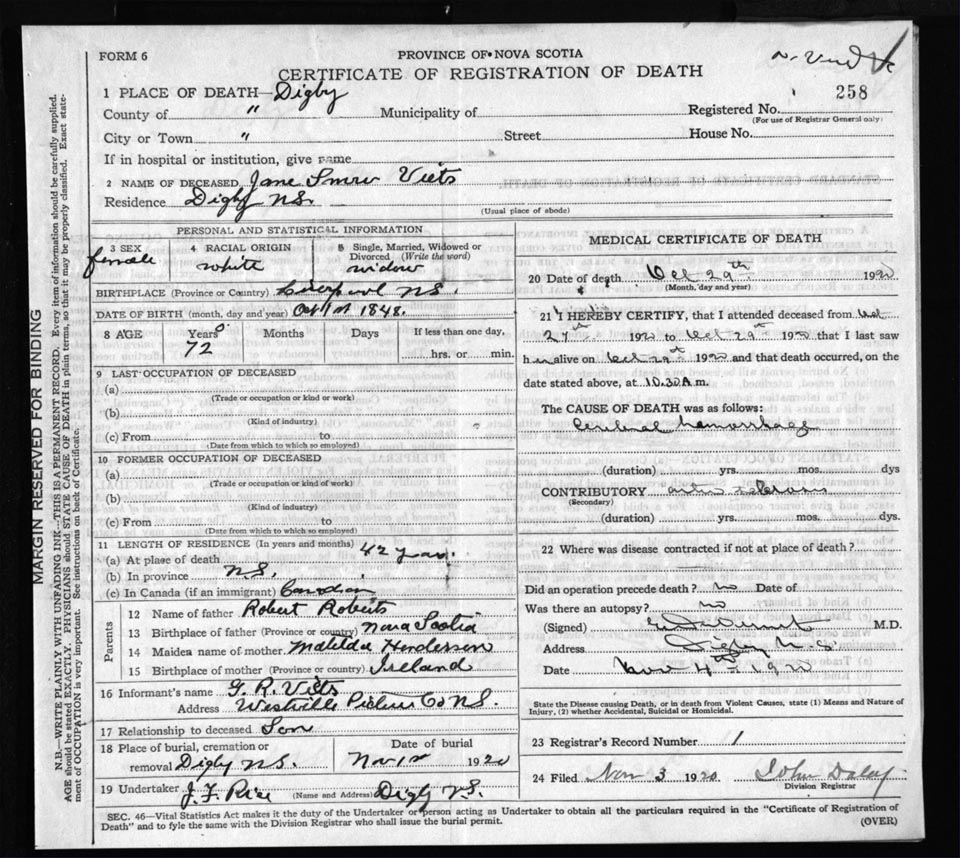 FORM 6
PROVINCE OF NOVA SCOTIA
CERTIFICATE OF REGISTRATION OF DEATH
258
1 PLACE OF DEATH—Digby
County of " Municipality of Registered No.
(For use of Registrar General only)
City or Town " Street House No.
If in hospital or institution, give name
2 NAME OF DECEASED Jane Viets
Residence Digby N.S.
(Usual place of abode)
PERSONAL AND STATISTICAL INFORMATION
3 SEX female
4 RACIAL ORIGIN white
5 Single, Married, Widowed or Divorced (Write the word) widow
BIRTHPLACE (Province or Country) Liverpool N.S.
DATE OF BIRTH (month, day and year) Oct 1st 1848.
8 AGE Years 72 Months Days If less than one day, hrs. or min.
9 LAST OCCUPATION OF DECEASED
(a)
(Trade or occupation or kind of work)
(b)
(Kind of industry)
(c) From to
(Date from which to which so employed)
10 FORMER OCCUPATION OF DECEASED
(a)
(Trade or occupation or kind of work)
(b)
(Kind of industry)
(c) From to
(Date from which to which so employed)
11 LENGTH OF RESIDENCE (In years and months)
(a) At place of death 42 years
(b) In province N.S.
(c) In Canada (if an immigrant) Canadian
Parents
12 Name of father Robert Roberts
13 Birthplace of father (Province or country) Nova Scotia
14 Maiden name of mother Matilda Henderson
15 Birthplace of mother (Province or country) Ireland
16 Informant's name G. R. Viets
Address Westville Pictou Co N.S.
17 Relationship to deceased Son
18 Place of burial, cremation or removal Digby N.S.
Date of burial Nov 1st 1920
19 Undertaker J. F. Rice (Name and Address) Digby N.S.
MEDICAL CERTIFICATE OF DEATH
20 Date of death Oct 29th 1920
(Month, day and year)
21 I HEREBY CERTIFY, that I attended deceased from Oct
27th 1920 to Oct 29th 1920 that I last saw
h er alive on Oct 29th 1920 and that death occurred, on the
date stated above, at 10.30 A.m.
The CAUSE OF DEATH was as follows:
Cerebral hemorrhage
(duration) yrs. mos. dys
CONTRIBUTORY arterio sclerosis
(Secondary)
(duration) yrs. mos. dys.
22 Where was disease contracted if not at place of death?
Did an operation precede death? no Date of
Was there an autopsy? no
(Signed) M.D.
Address Digby N.S.
Date Nov 4th 1920
State the Disease causing Death, or in death from Violent Causes, state (1) Means and Nature of
Injury, (2) whether Accidental, Suicidal or Homicidal.
23 Registrar's Record Number 1
24 Filed Nov 3 1920 John Daley
Division Registrar
SEC. 46—Vital Statistics Act makes it the duty of the Undertaker or person acting as Undertaker to obtain all the particulars required in the "Certificate of Registration of
Death" and to fyle the same with the Division Registrar who shall issue the burial permit.
(OVER)
MARGIN RESERVED FOR BINDING
N.B.—WRITE PLAINLY WITH UNFADING INK—THIS IS A PERMANENT RECORD. Every item of information should be carefully supplied.
AGE should be stated EXACTLY. PHYSICIANS should STATE CAUSE OF DEATH in plain terms, so that it may be properly classified. Exact state-
ment of OCCUPATION is very important. See instructions on back of Certificate.